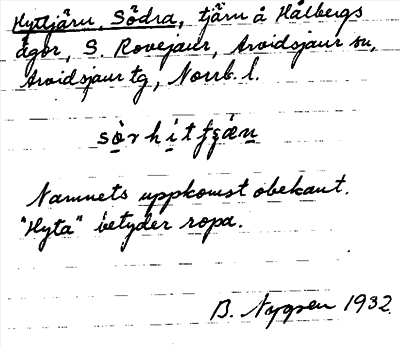 Hyttjärn, Södra, tjärn å Hålbergs
ägor, S. Rovejaur, Arvidsjaur sn,
Arvidsjaur tg, Norrb. l.
Namnets uppkomst obekant.
"Hyta" betyder ropa.
B. Nygren 1932